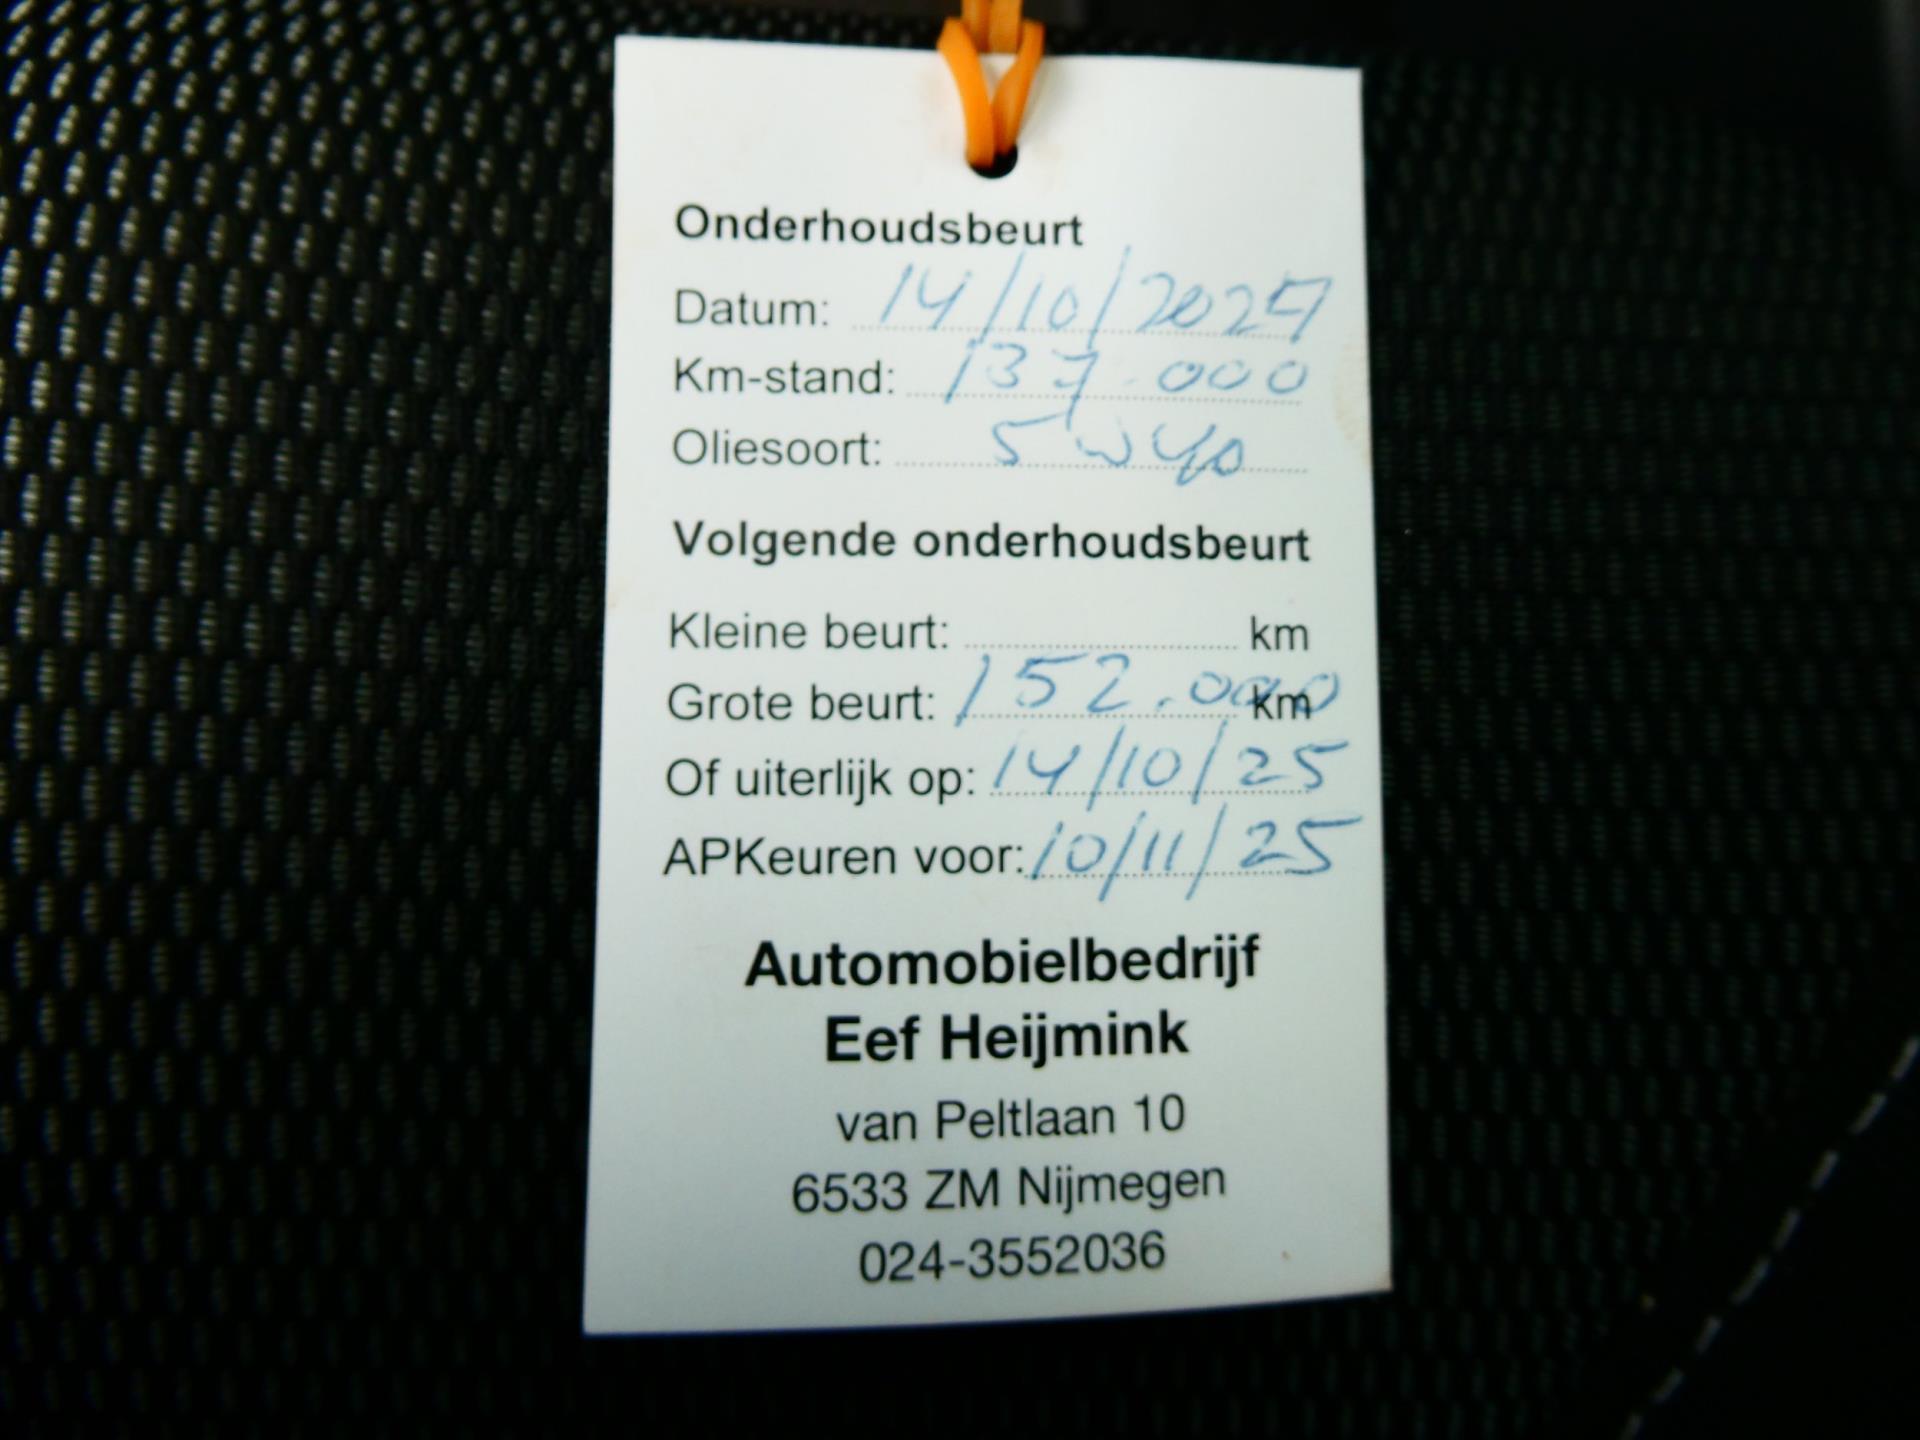 Onderhoudsbeurt
Datum: 14/10/2024
Km-stand: 137.000
Oliesoort: 5w40
Volgende onderhoudsbeurt
Kleine beurt: km
Grote beurt: 152.000 km
Of uiterlijk op: 14/10/25
APKeuren voor: 10/11/25
Automobielbedrijf
Eef Heijmink
van Peltlaan 10
6533 ZM Nijmegen
024-3552036